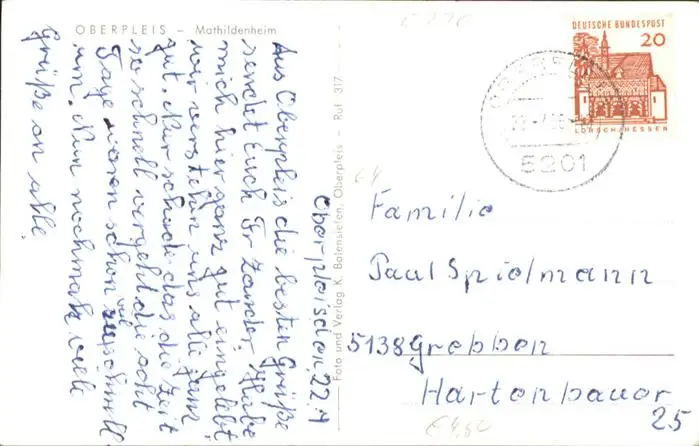 OBERPLEIS – Mathildenheim
Oberpleis den 22.7
Aus Oberpleis die besten Grüße
sendet Euch Fr Zander. Habe
mich hier ganz gut eingelebt
wir verstehn uns alle ganz
gut. Nur schade das die Zeit
so schnell vergeht die acht
Tage waren schon viel zu schnell
um. Nun nochmals viele
Grüße an alle
Foto und Verlag K. Balensiefen, Oberpleis – Ruf 317
DEUTSCHE BUNDESPOST
20
LORSCH/HESSEN
5201
Familie
Paul Spielmann
5138 Grebben
Hartenbauer
25